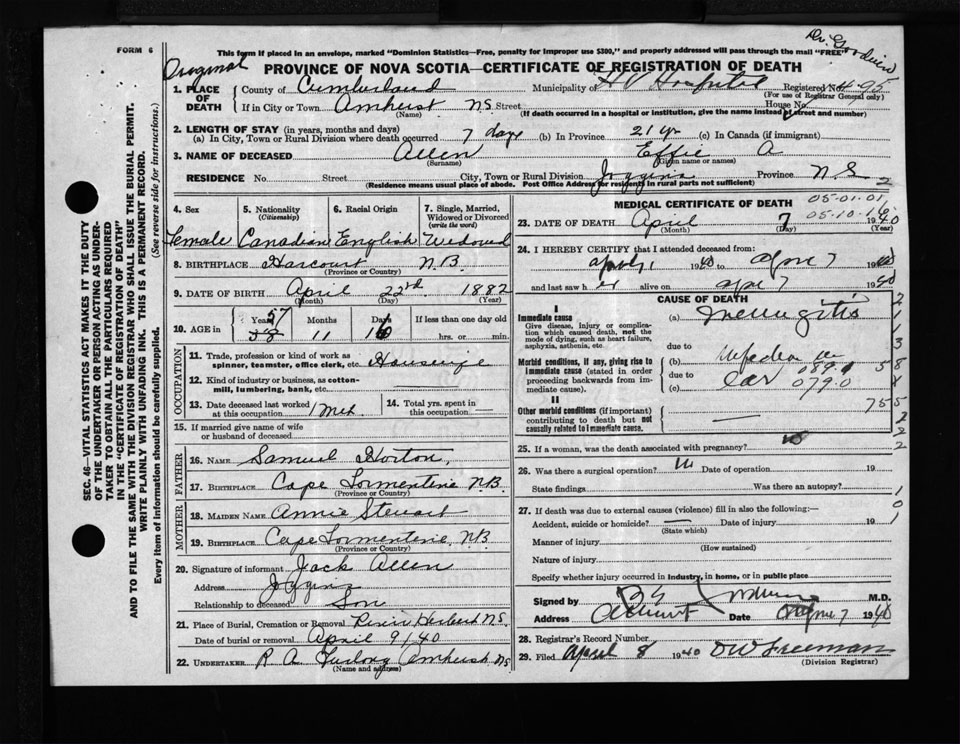 FORM 6
This form if placed in an envelope, marked "Dominion Statistics—Free, penalty for improper use $300," and properly addressed will pass through the mail "FREE"
Dr. Goodwin
Original
PROVINCE OF NOVA SCOTIA—CERTIFICATE OF REGISTRATION OF DEATH
1. PLACE OF DEATH
County of Cumberland Municipality of H V Hospital Registered No. 495
(For use of Registrar General only)
If in City or Town Amherst N.S. Street House No.
(Name) (If death occurred in a hospital or institution, give the name instead of street and number)
2. LENGTH OF STAY (in years, months and days)
(a) In City, Town or Rural Division where death occurred 7 days (b) In Province 21 yr (c) In Canada (if immigrant)
3. NAME OF DECEASED Allen Effie A
(Surname) (Given name or names)
RESIDENCE No. Street City, Town or Rural Division Joggins Province N.S. 2
(Residence means usual place of abode. Post Office Address for residents in rural parts not sufficient)
SEC. 46—VITAL STATISTICS ACT MAKES IT THE DUTY
OF THE UNDERTAKER OR PERSON ACTING AS UNDER-
TAKER TO OBTAIN ALL THE PARTICULARS REQUIRED
IN THE "CERTIFICATE OF REGISTRATION OF DEATH"
AND TO FILE THE SAME WITH THE DIVISION REGISTRAR WHO SHALL ISSUE THE BURIAL PERMIT.
WRITE PLAINLY WITH UNFADING INK. THIS IS A PERMANENT RECORD.
Every item of information should be carefully supplied. (See reverse side for instructions.)
4. Sex 5. Nationality (Citizenship) 6. Racial Origin 7. Single, Married, Widowed or Divorced (write the word)
Female Canadian English Widowed
8. BIRTHPLACE Harcourt N.B.
(Province or Country)
9. DATE OF BIRTH April 22nd. 1882
(Month) (Day) (Year)
10. AGE in Years 57 Months 11 Days 16 If less than one day old
58 hrs. or min.
OCCUPATION
11. Trade, profession or kind of work as spinner, teamster, office clerk, etc. Housewife
12. Kind of industry or business, as cotton-mill, lumbering, bank, etc.
13. Date deceased last worked at this occupation 1 Mth. 14. Total yrs. spent in this occupation
15. If married give name of wife or husband of deceased
FATHER
16. Name Samuel Horton,
17. Birthplace Cape Tormentine N.B.
(Province or Country)
MOTHER
18. Maiden Name Annie Stewart
19. Birthplace Cape Tormentine, N.B.
(Province or Country)
20. Signature of informant Jack Allen
Address Joggins
Relationship to deceased Son
21. Place of Burial, Cremation or Removal River Herbert N.S.
Date of burial or removal April 9/40
22. UNDERTAKER R A Furlong Amherst NS
(Name and address)
MEDICAL CERTIFICATE OF DEATH
05-01-01
05-10-1
23. DATE OF DEATH April 7 1940
(Month) (Day) (Year)
24. I HEREBY CERTIFY that I attended deceased from:
April 1 1940 to April 7 1940
and last saw her alive on April 7 1940
CAUSE OF DEATH
I
Immediate cause
Give disease, injury or complication which caused death, not the mode of dying, such as heart failure, asphyxia, asthenia, etc.
(a) Meningitis
due to
Morbid conditions, if any, giving rise to immediate cause (stated in order proceeding backwards from immediate cause).
(b) Infection
due to 089.1
(c) ear 079.0
II
Other morbid conditions (if important) contributing to death but not causally related to immediate cause.
25. If a woman, was the death associated with pregnancy? no
26. Was there a surgical operation? Date of operation 19
State findings Was there an autopsy?
27. If death was due to external causes (violence) fill in also the following:—
Accident, suicide or homicide? Date of injury 19
(State which)
Manner of injury
(How sustained)
Nature of injury
Specify whether injury occurred in industry, in home, or in public place
Signed by M.D.
Address Amherst Date April 7 1940
28. Registrar's Record Number
29. Filed April 8 1940 D W Freeman
(Division Registrar)